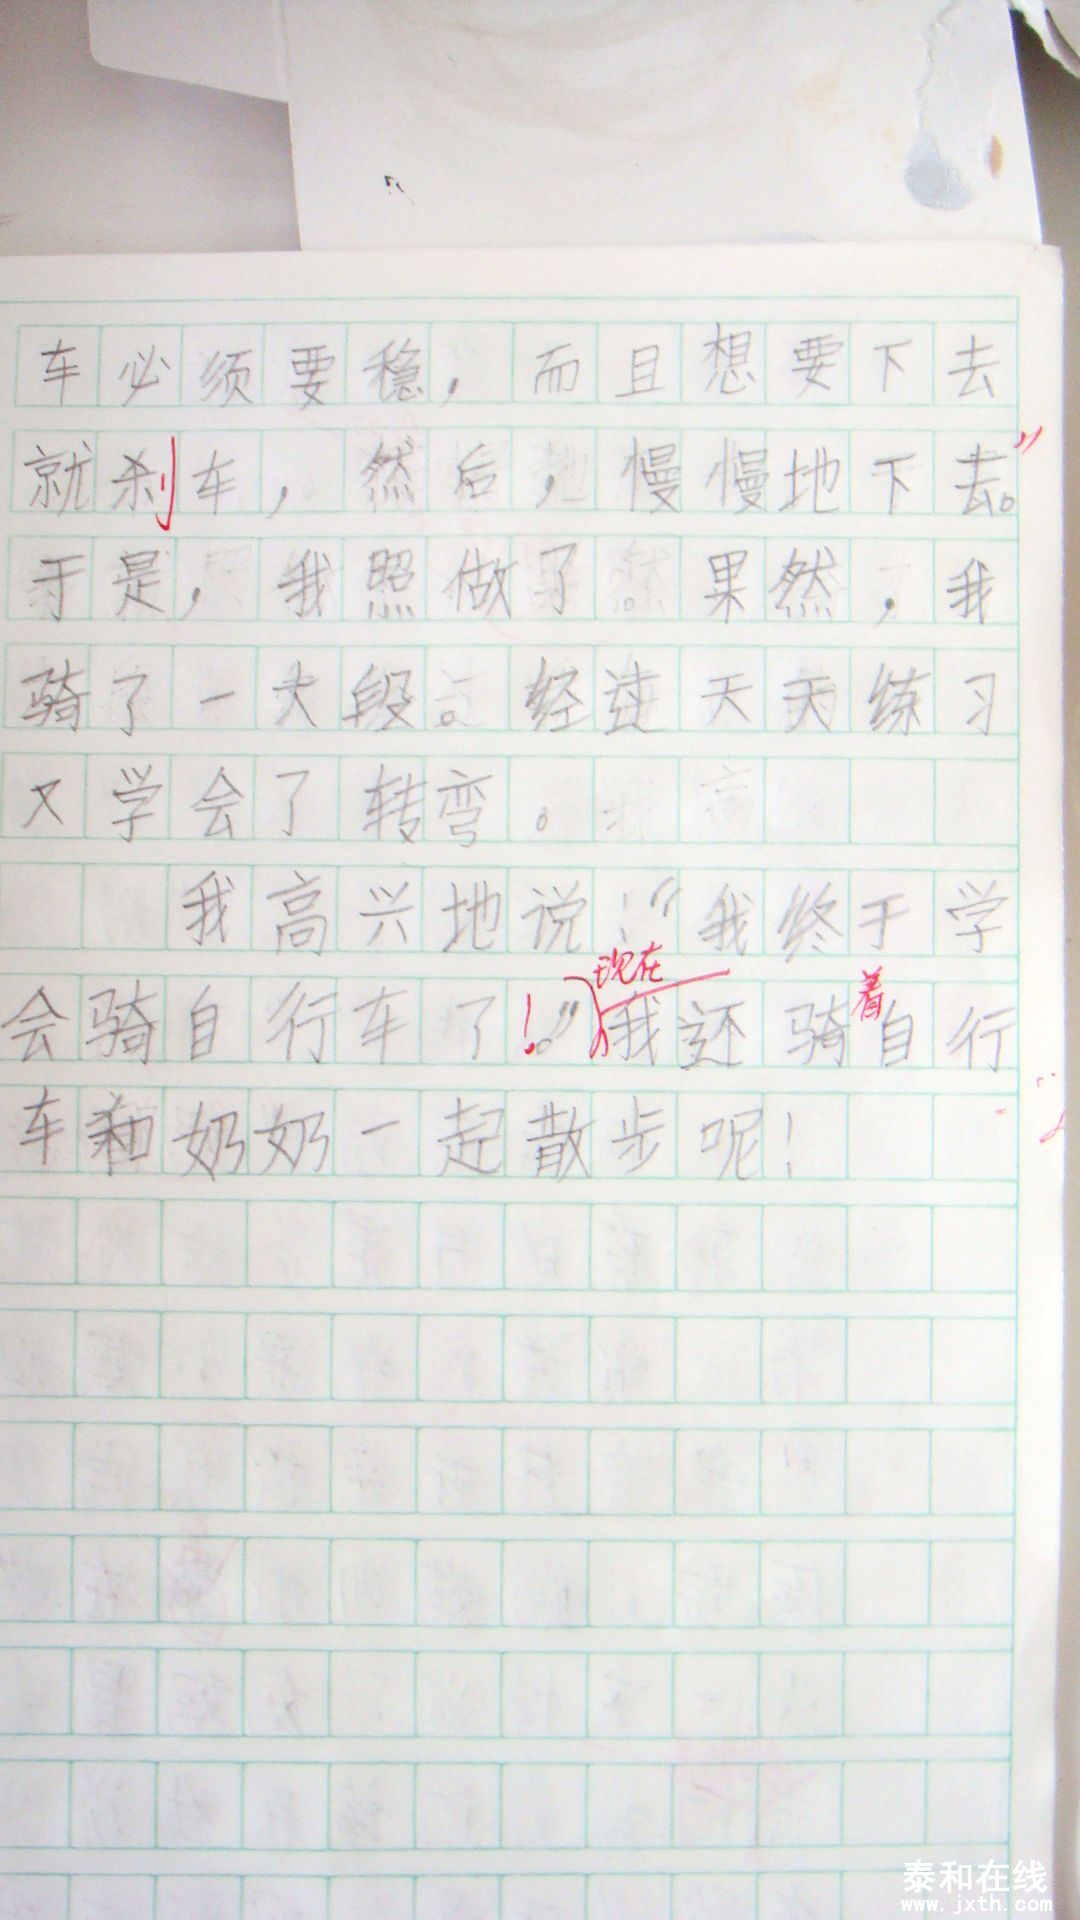 车必须要稳，而且想要下去
就刹车，然后，慢慢地下去。”
于是，我照做了。果然，我
骑了一大段。经过天天练习
又学会了转弯。
我高兴地说：“我终于学
现在
着
会骑自行车了！。”我还骑自行
车和奶奶一起散步呢！
泰和在线
www.jxth.com